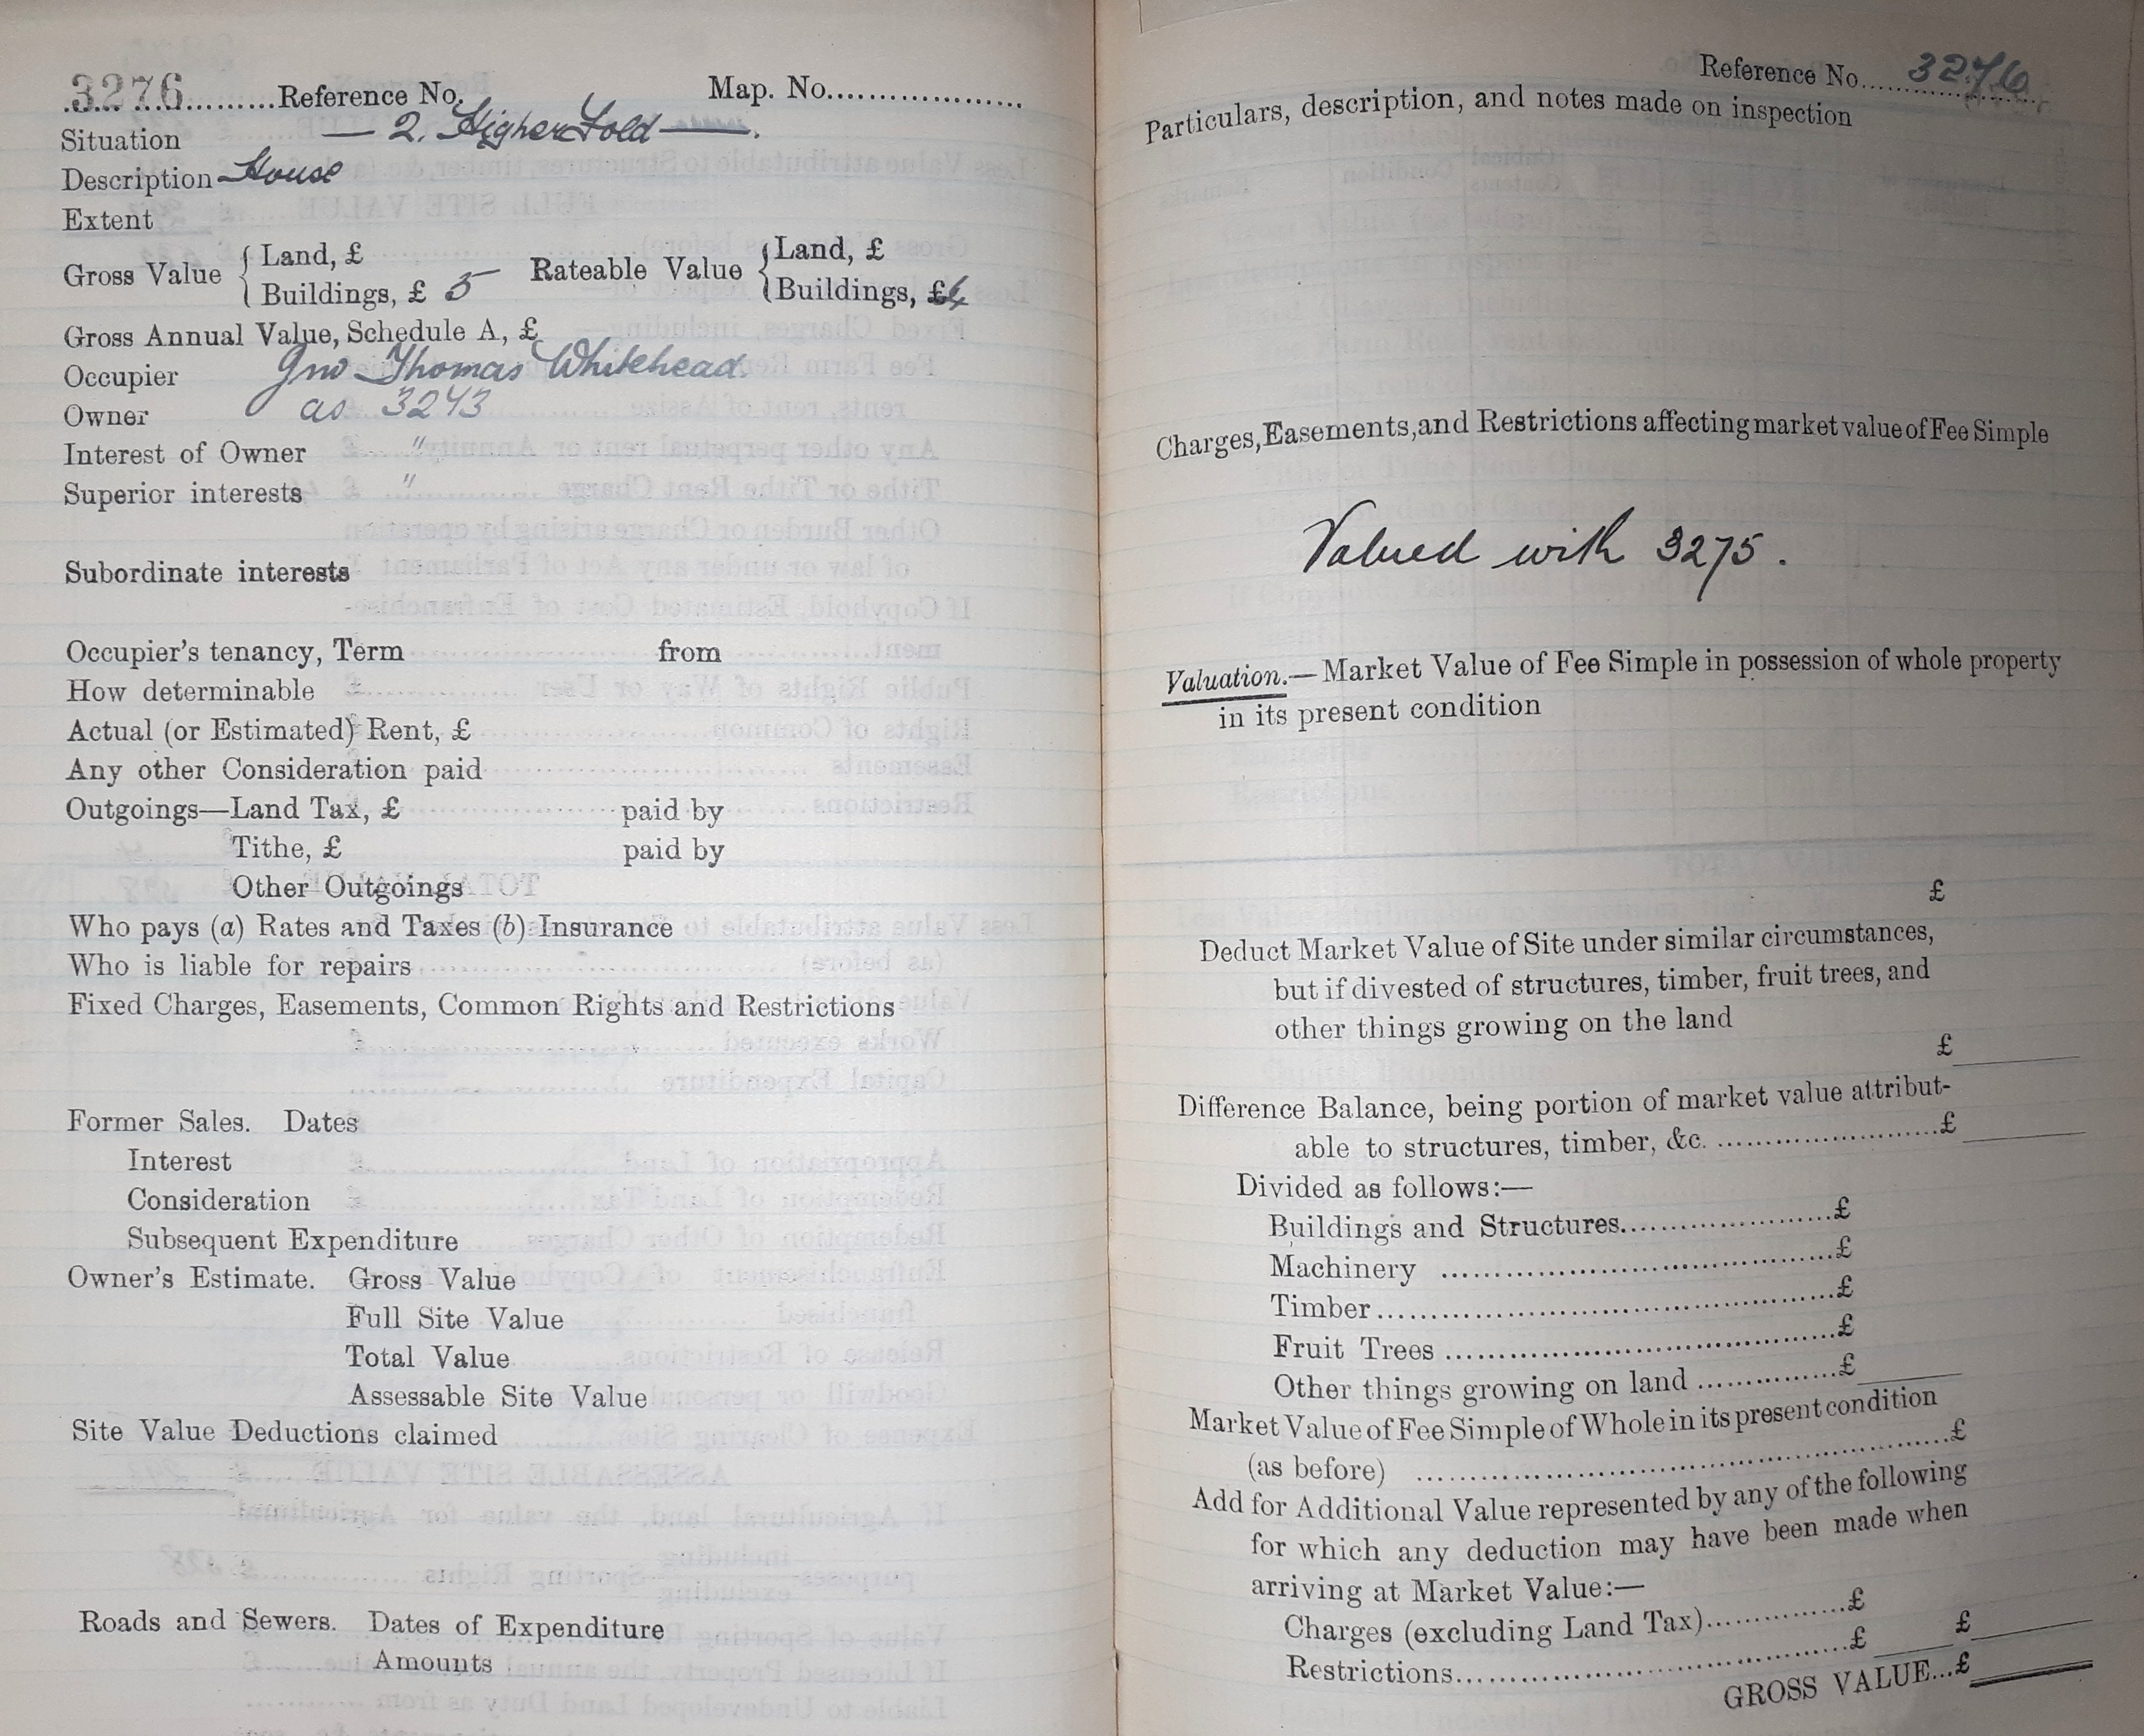 3276 Reference No. Map. No.
Situation — 2. Higher Fold —.
Description House
Extent
Gross Value { Land, £ Rateable Value { Land, £
Buildings, £ 5 Buildings, £4
Gross Annual Value, Schedule A, £
Occupier Jno Thomas Whitehead.
Owner as 3243
Interest of Owner "
Superior interests "
Subordinate interests
Occupier's tenancy, Term from
How determinable
Actual (or Estimated) Rent, £
Any other Consideration paid
Outgoings—Land Tax, £ paid by
Tithe, £ paid by
Other Outgoings
Who pays (a) Rates and Taxes (b) Insurance
Who is liable for repairs
Fixed Charges, Easements, Common Rights and Restrictions
Former Sales. Dates
Interest
Consideration
Subsequent Expenditure
Owner's Estimate. Gross Value
Full Site Value
Total Value
Assessable Site Value
Site Value Deductions claimed
Roads and Sewers. Dates of Expenditure
Amounts
Reference No. 3276
Particulars, description, and notes made on inspection
Charges, Easements, and Restrictions affecting market value of Fee Simple
Valued with 3275.
Valuation.—Market Value of Fee Simple in possession of whole property
in its present condition
£
Deduct Market Value of Site under similar circumstances,
but if divested of structures, timber, fruit trees, and
other things growing on the land
£
Difference Balance, being portion of market value attribut-
able to structures, timber, &c. £
Divided as follows:—
Buildings and Structures £
Machinery £
Timber £
Fruit Trees £
Other things growing on land £
Market Value of Fee Simple of Whole in its present condition
(as before) £
Add for Additional Value represented by any of the following
for which any deduction may have been made when
arriving at Market Value:—
Charges (excluding Land Tax) £
Restrictions £ £
GROSS VALUE...£